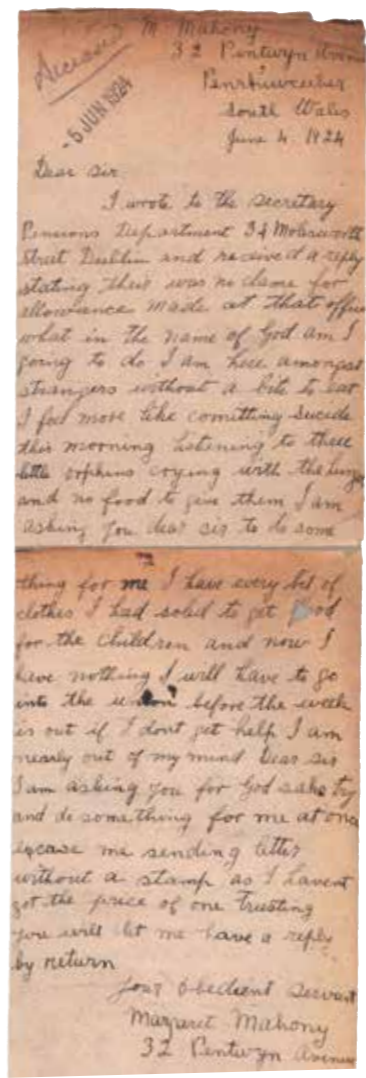 M. Mahony
32 Pentwyn Avenue
Penrhiwceiber
South Wales
June 4 1924
Deceased
-5 JUN 1924
Dear Sir
I wrote to the Secretary
Pensions Department 34 Molesworth
Street Dublin and received a reply
stating their was no clame for
allowance made at that office
what in the name of God am I
going to do I am here amongst
strangers without a bite to eat
I feel more like comitting sucide
this morning listening to three
little orphins crying with the hunger
and no food to give them I am
asking you dear sir to do some
thing for me I have every bit of
clothes I had sold to get food
for the children and now I
have nothing I will have to go
into the union before the week
is out if I dont get help I am
nearly out of my mind Dear sir
I am asking you for God sake try
and do something for me at once
excase me sending letter
without a stamp as I havent
got the price of one trusting
you will let me have a reply
by return
your obedient servant
Margaret Mahony
32 Pentwyn Avenue